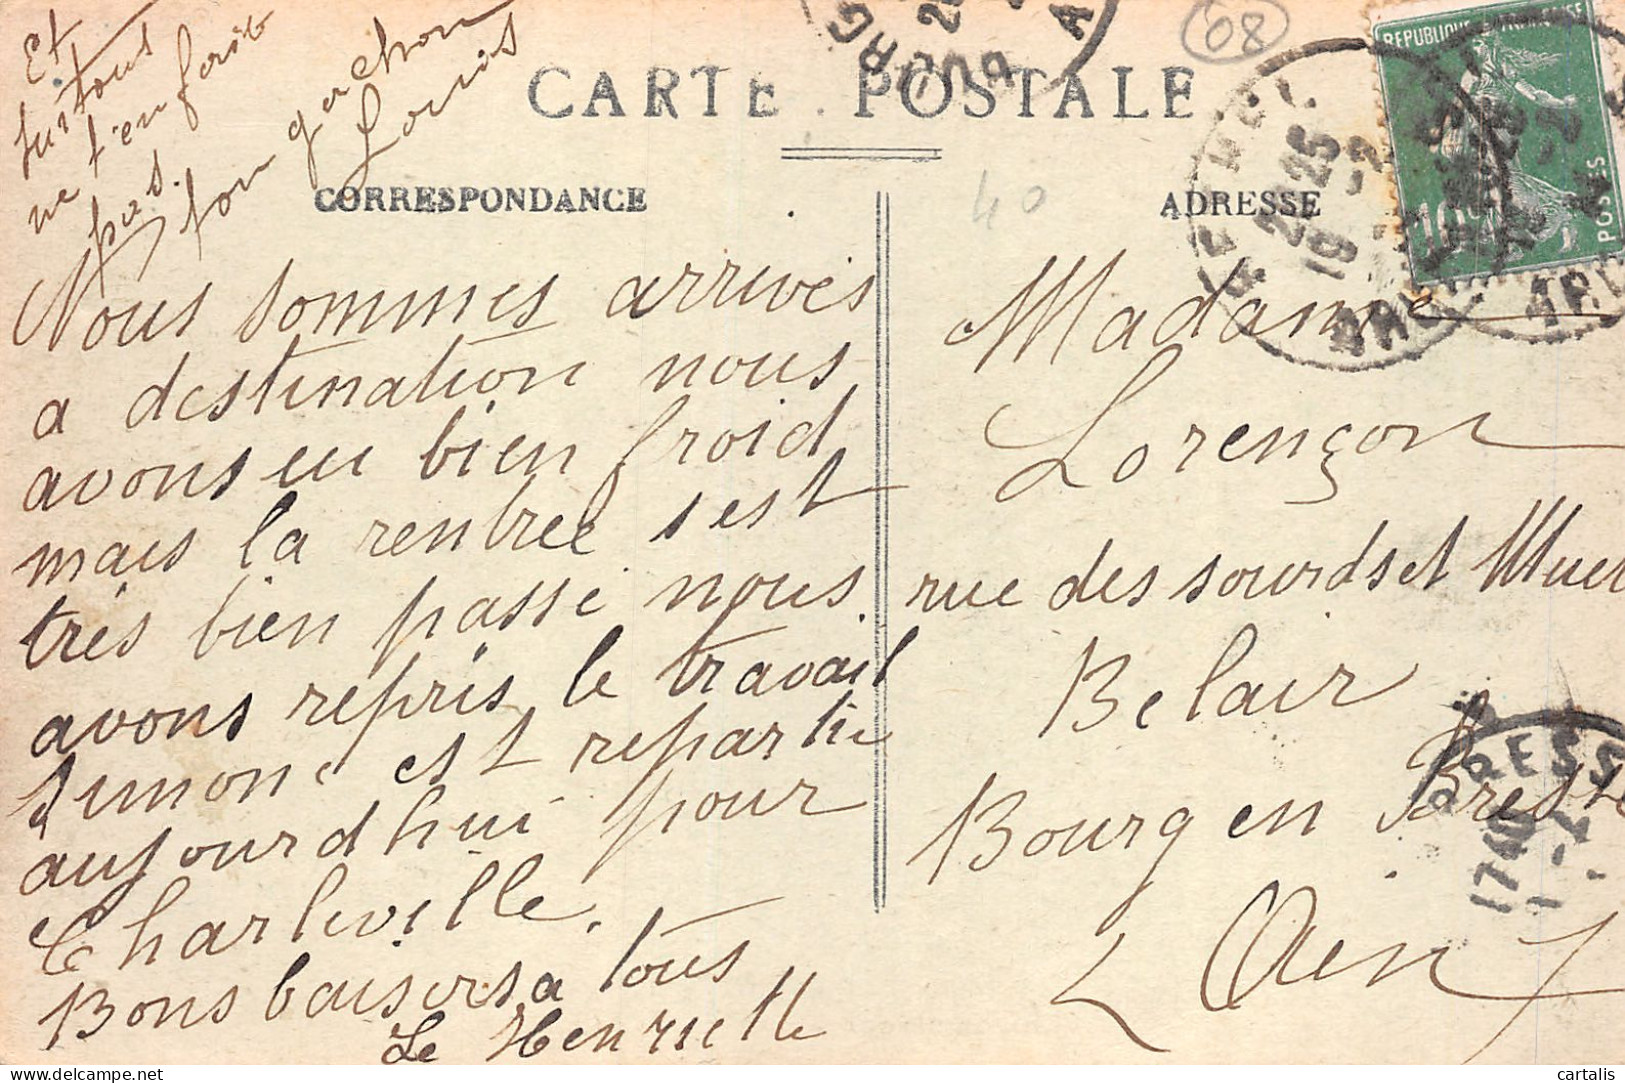 Et
surtout
ne t'en fais
pas.
ton gachon
Louis
CARTE POSTALE
CORRESPONDANCE
Nous sommes arrivés
a destination nous
avons eu bien froid
mais la rentrée s'est
très bien passé nous
avons repris le travail
Simone est repartie
aujourd'hui pour
Charleville.
Bons baisers a tous
Le Henriette
68
40
REPUBLIQUE FRANÇAISE
10c
POSTES
22 25
19 - 2
ADRESSE
Madame
Lorençon
rue des sourds et Muet
Belair
Bourg en Bresse
L Ain
BRESSE
17 40
cartalis